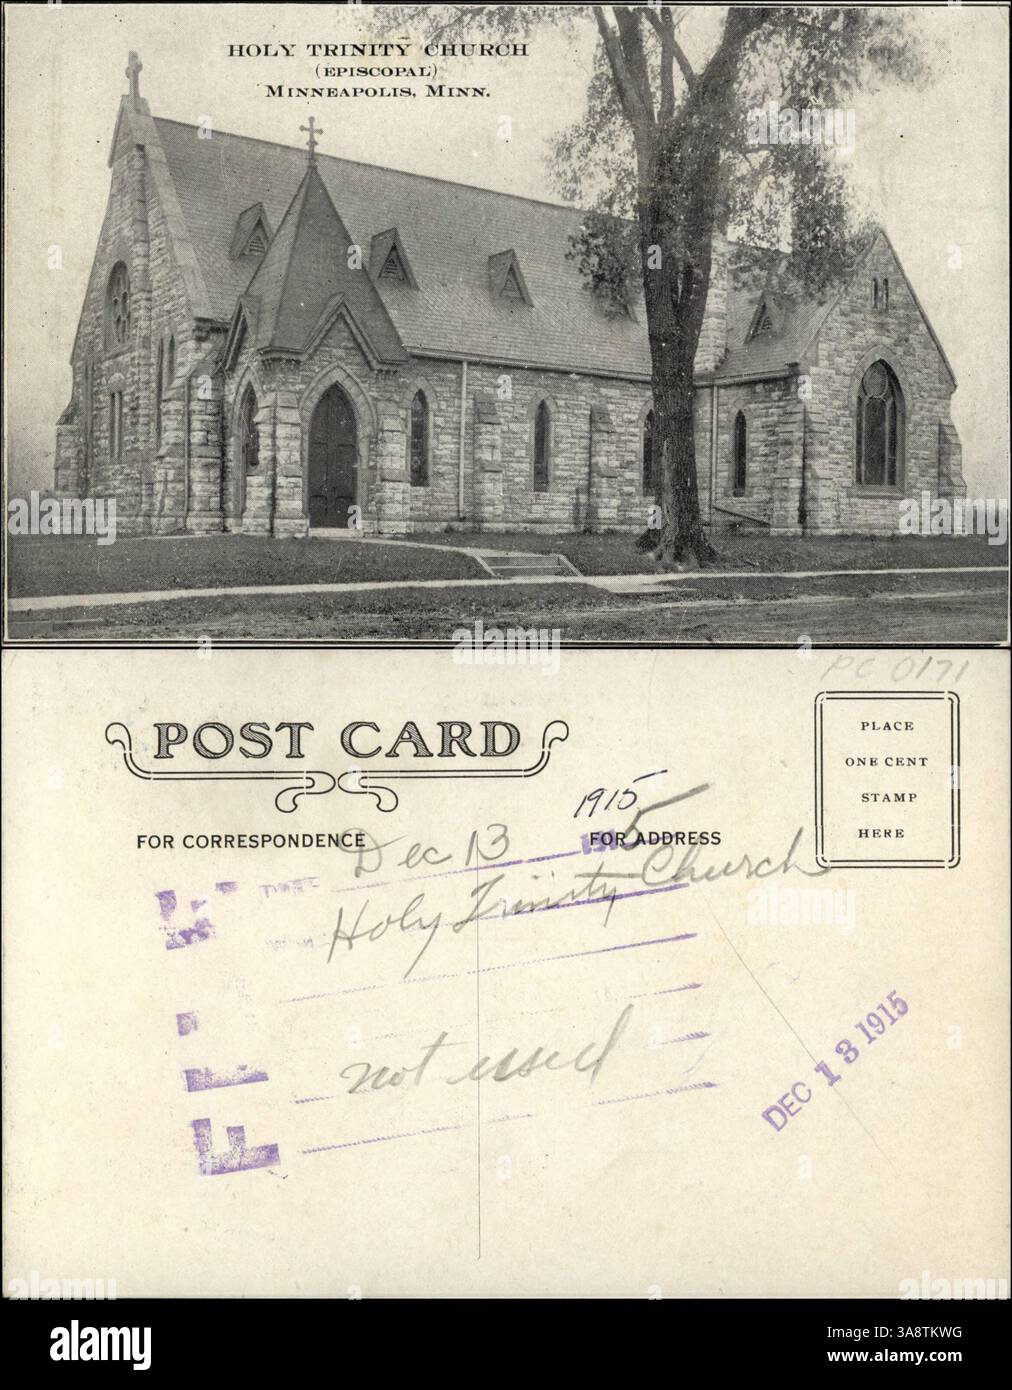 HOLY TRINITY CHURCH
(EPISCOPAL)
MINNEAPOLIS, MINN.
alamy
PC 0171
POST CARD
PLACE
ONE CENT
STAMP
HERE
1915
FOR CORRESPONDENCE
FOR ADDRESS
Dec 13 1915
Holy Trinity Church
not used
DEC 13 1915
alamy
Image ID: 3A8TKWG
www.alamy.com